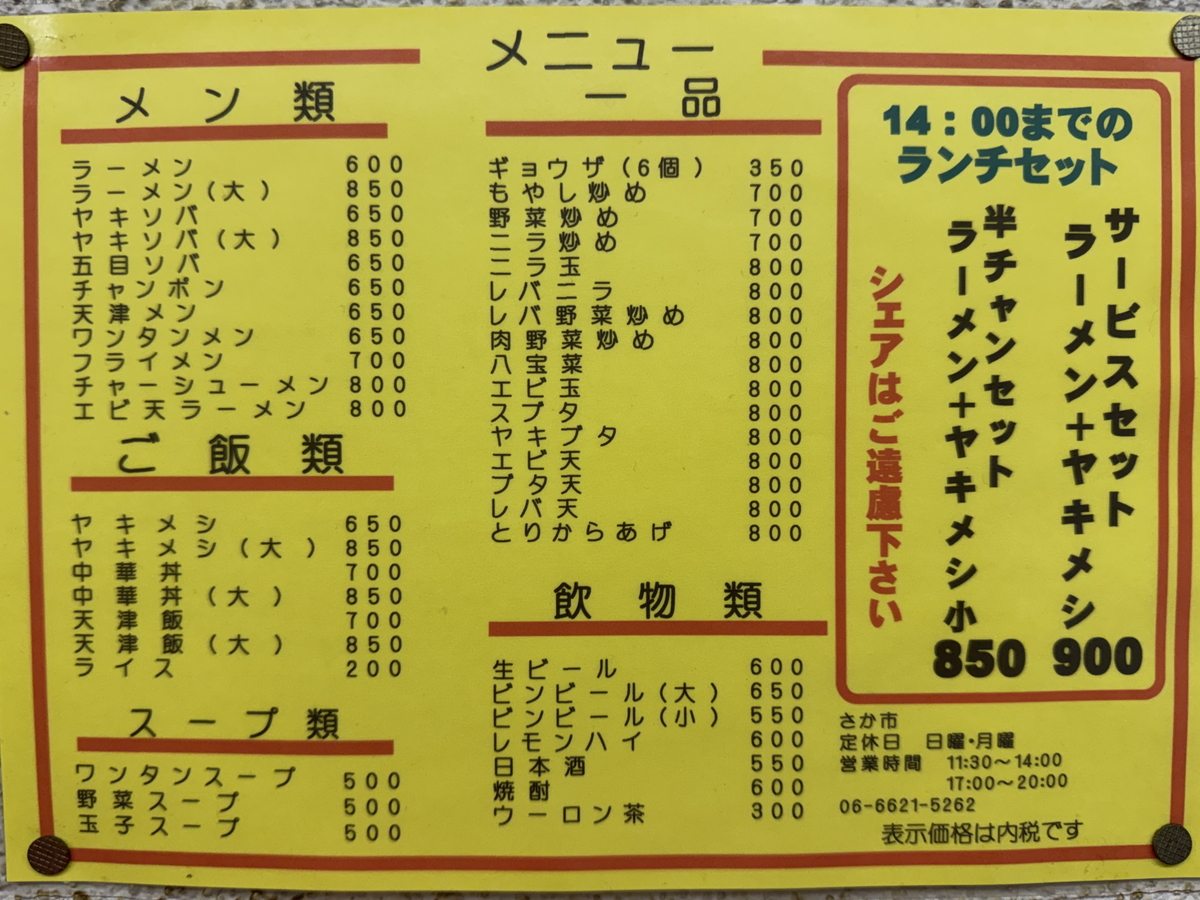 メニュー
メン類
ラーメン 600
ラーメン(大) 850
ヤキソバ 650
ヤキソバ(大) 850
五目ソバ 650
チャンポン 650
天津メン 650
ワンタンメン 650
フライメン 700
チャーシューメン 800
エビ天ラーメン 800
ご飯類
ヤキメシ 650
ヤキメシ(大) 850
中華丼 700
中華丼(大) 850
天津飯 700
天津飯(大) 850
ライス 200
スープ類
ワンタンスープ 500
野菜スープ 500
玉子スープ 500
一品
ギョウザ(6個) 350
もやし炒め 700
野菜炒め 700
ニラ炒め 700
ニラ玉 800
レバニラ 800
レバ野菜炒め 800
肉野菜炒め 800
八宝菜 800
エビ玉 800
スブタ 800
ヤキブタ 800
エビ天 800
ブタ天 800
レバ天 800
とりからあげ 800
飲物類
生ビール 600
ビンビール(大) 650
ビンビール(小) 550
レモンハイ 600
日本酒 550
焼酎 600
ウーロン茶 300
14:00までの
ランチセット
サービスセット
ラーメン+ヤキメシ
900
半チャンセット
ラーメン+ヤキメシ小
850
シェアはご遠慮下さい
さか市
定休日 日曜・月曜
営業時間 11:30~14:00
17:00~20:00
06-6621-5262
表示価格は内税です